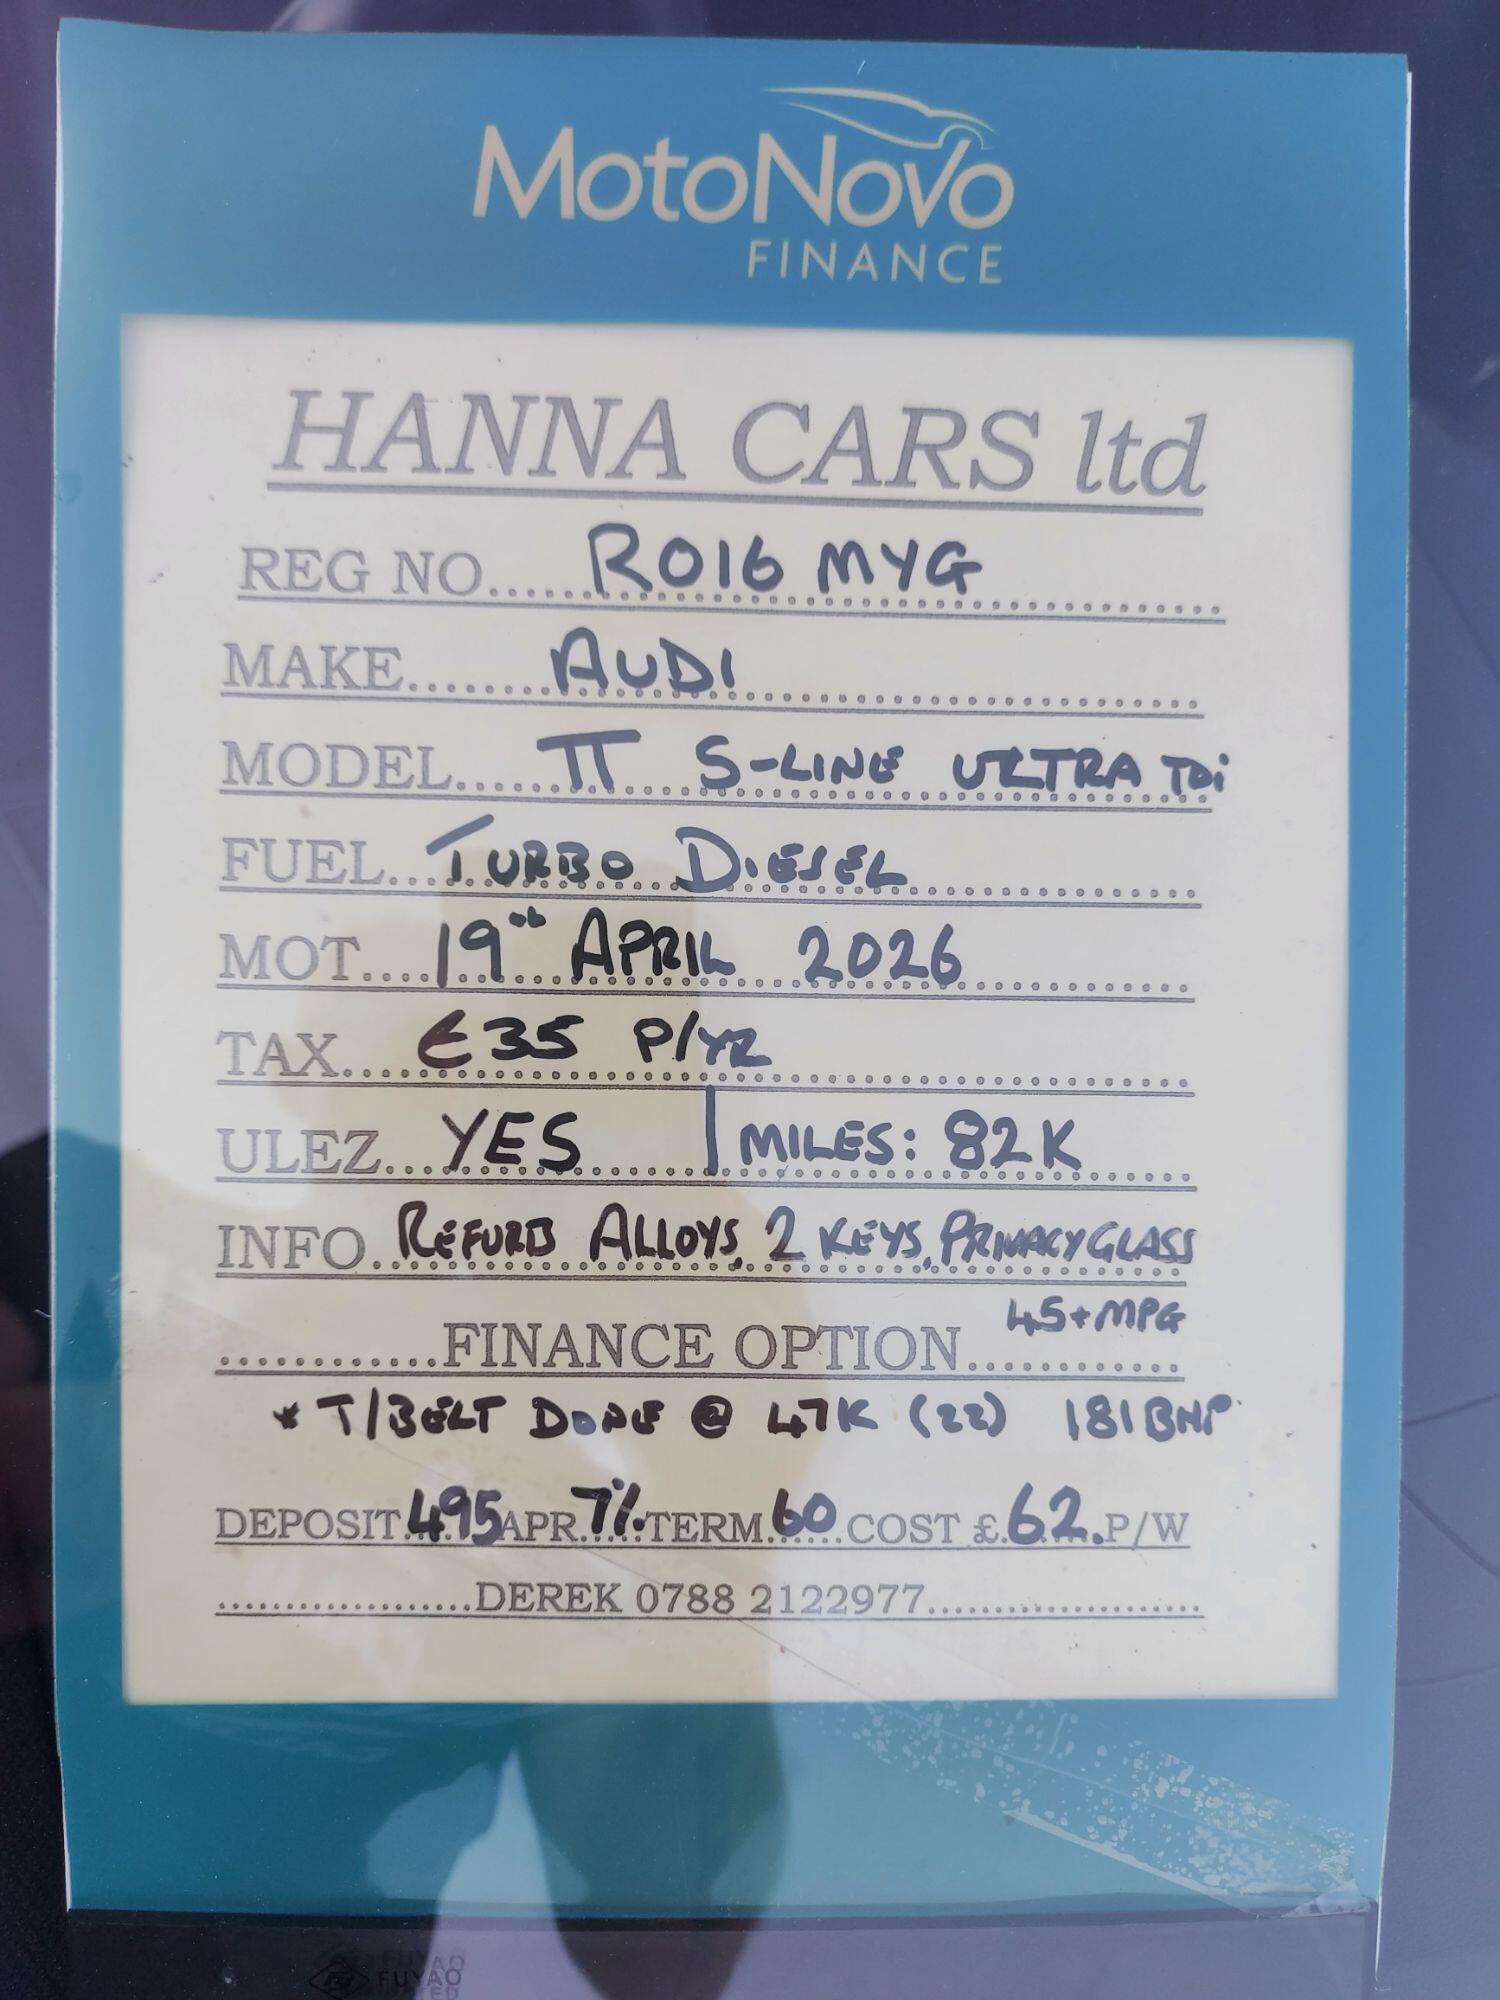 MotoNovo
FINANCE
HANNA CARS ltd
REG NO......RO16 MYG
MAKE......AUDI
MODEL......TT S-LINE ULTRA TDi
FUEL...TURBO DIESEL
MOT....19th APRIL 2026
TAX....£35 P/YR
ULEZ...YES | MILES: 82K
INFO.REFURB ALLOYS, 2 KEYS, PRIVACY GLASS
45+MPG
............FINANCE OPTION............
* T/BELT DONE @ 47K (22) 181BHP
DEPOSIT 495 APR 7% TERM 60 COST £ 62. P/W
...................DEREK 0788 2122977....................
FUYAO